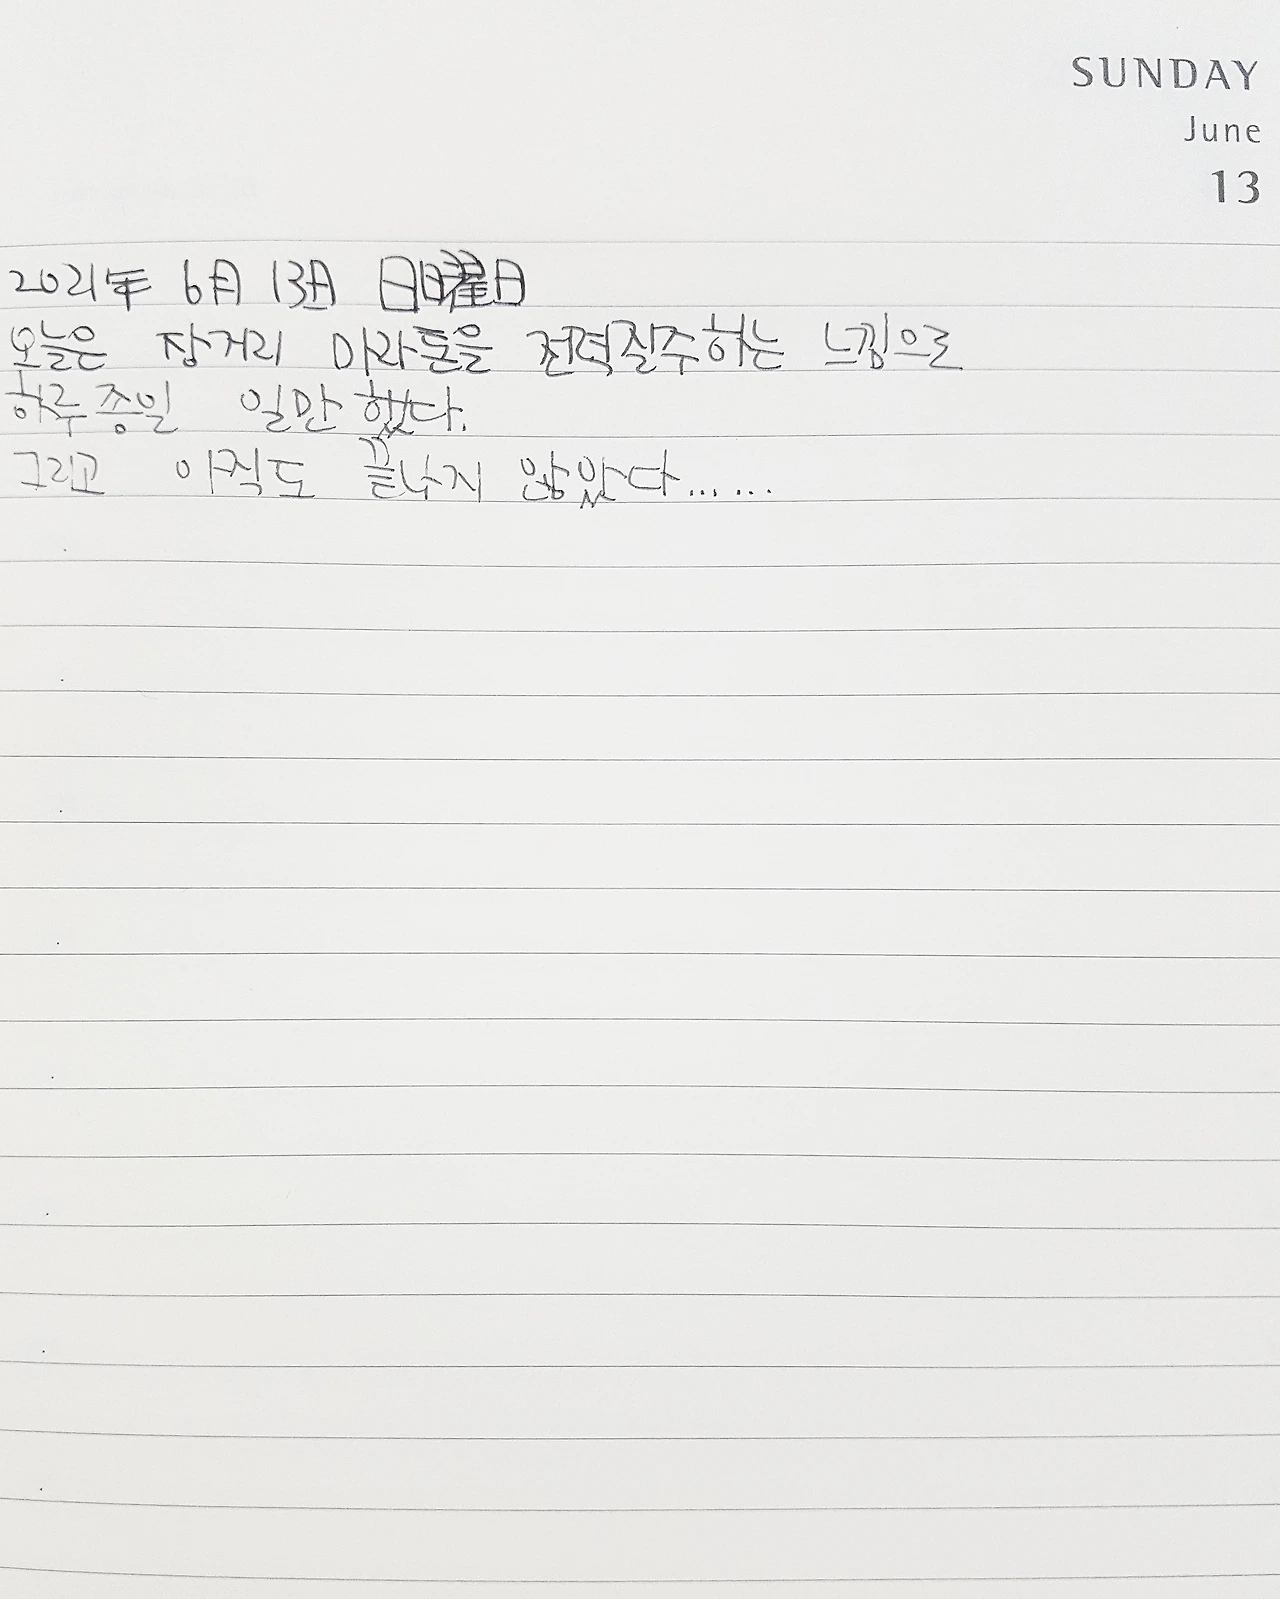 SUNDAY
June
13
2021年 6月 13日 日曜日
오늘은 장거리 마라톤을 전력질주하는 느낌으로
하루종일 일만 했다.
그리고 아직도 끝나지 않았다......